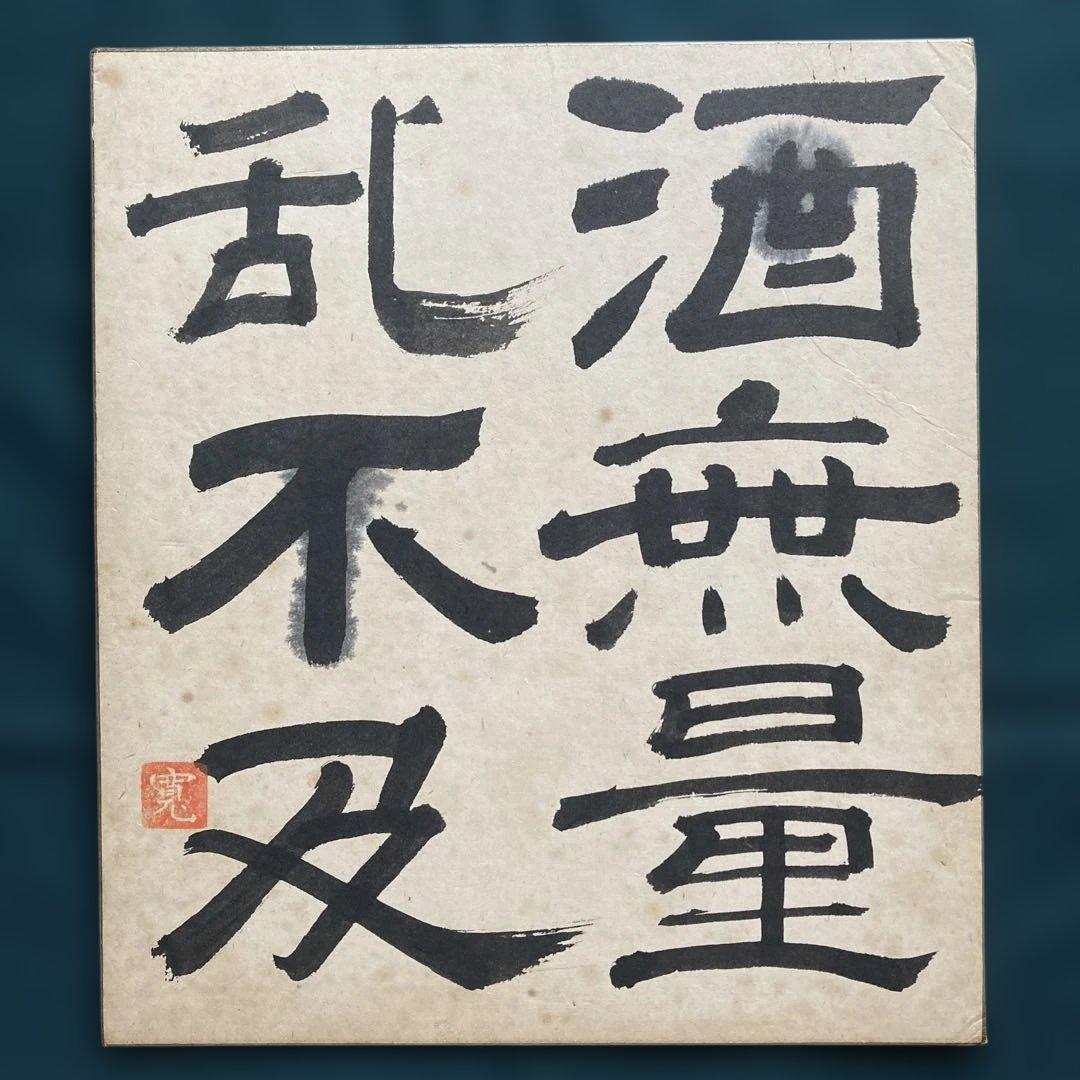 酒無量
乱不及
寛